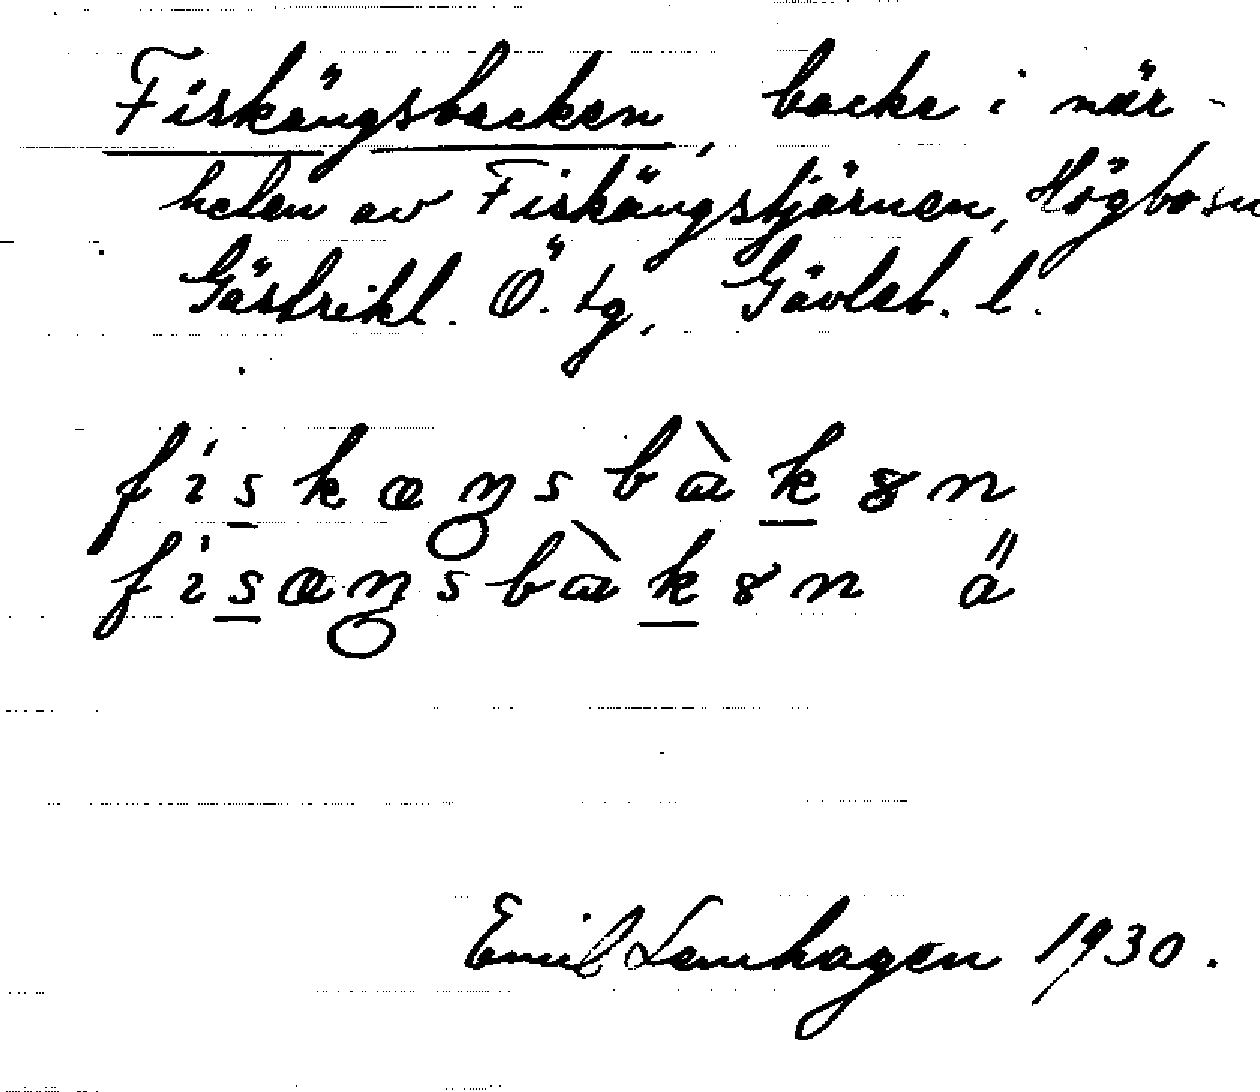 Fiskängsbacken, backe i när-
heten av Fiskängstjärnen, Högbo sn
Gästrikl. Ö. tg, Gävleb. l.
fiskæŋsbàkən
fisæŋsbàkən ä
Emil Lenhagen 1930.